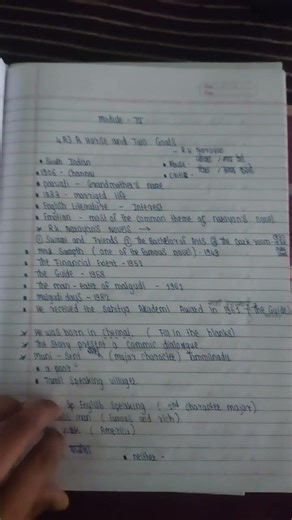 Module - IV
4.A] A Horse and Two Goats
- R.K Narayan
• South Indian
• 1906 - Chennai
• parvati - Grandmother's name
• married life
• English Literature - Interest
• Familian - most of the common theme of narayan's novel
* R.K Narayan's novels →
① Swami and Friends ② The Bachelor of Arts ③ The Dark Room
• Mr. Sampth (one of the famous novel) - 1949
• The Financial Expert - 1952
• The Guide - 1958
• The man-eater of malgudi - 1961
• Malgudi days - 1982
• He received the Sahitya Akademi Award in (The Guide)
* He was born in Chennai. (Fill in the blanks)
* The Story present a commic dialogue
* Muni - (major character) Tamilnadu
• a poor
• Tamil speaking villager
English Speaking (2nd character major)
man ( and rich)
(America)
• neither -